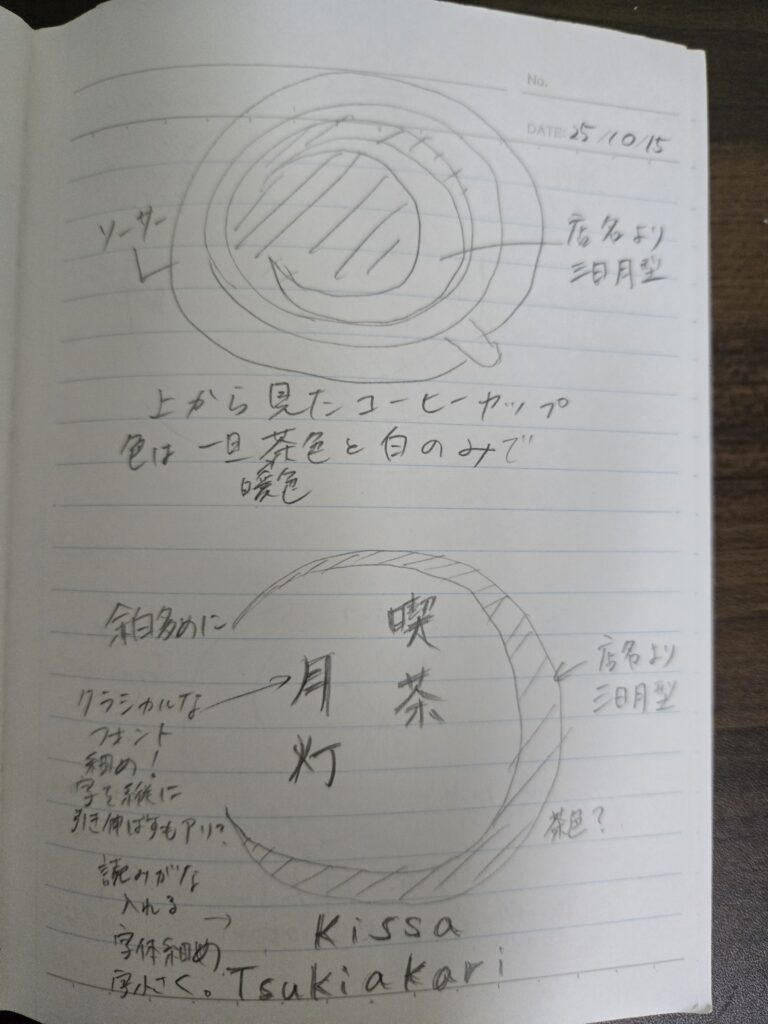 No.
DATE: 25/10/15
ソーサー
店名より
三日月型
上から見たコーヒーカップ
色は一旦茶色と白のみで
暖色
余白多めに
喫茶
月灯
店名より
三日月型
クラシカルな
フォント
細め！
字を縦に
引き伸ばすもアリ？
茶色？
読みがな
入れる
字体細め
字小さく。
→
Kissa
Tsukiakari